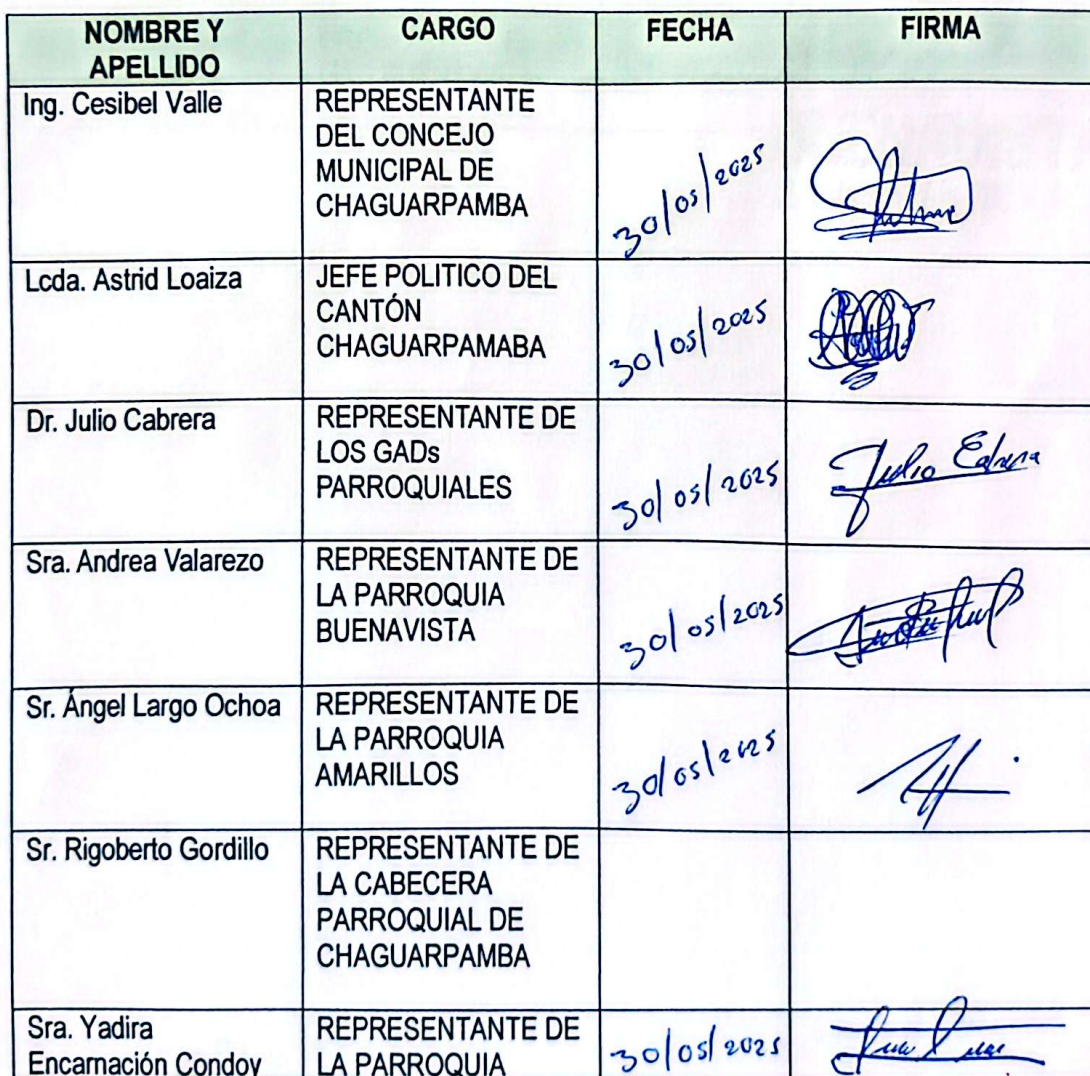 NOMBRE Y CARGO FECHA FIRMA
APELLIDO
Ing. Cesibel Valle REPRESENTANTE
DEL CONCEJO
MUNICIPAL DE
CHAGUARPAMBA
30/05/2025
Lcda. Astrid Loaiza JEFE POLITICO DEL
CANTÓN
CHAGUARPAMABA
30/05/2025
Dr. Julio Cabrera REPRESENTANTE DE
LOS GADs
PARROQUIALES
30/05/2025
Julio Cabrera
Sra. Andrea Valarezo REPRESENTANTE DE
LA PARROQUIA
BUENAVISTA
30/05/2025
Sr. Ángel Largo Ochoa REPRESENTANTE DE
LA PARROQUIA
AMARILLOS
30/05/2025
Sr. Rigoberto Gordillo REPRESENTANTE DE
LA CABECERA
PARROQUIAL DE
CHAGUARPAMBA
Sra. Yadira REPRESENTANTE DE
Encarnación Condoy LA PARROQUIA 30/05/2025